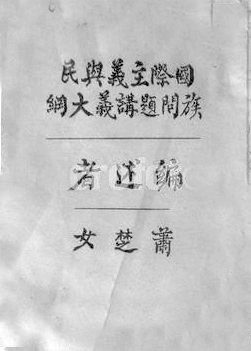 國際主義與民
族問題講義大綱
編述者
蕭楚女